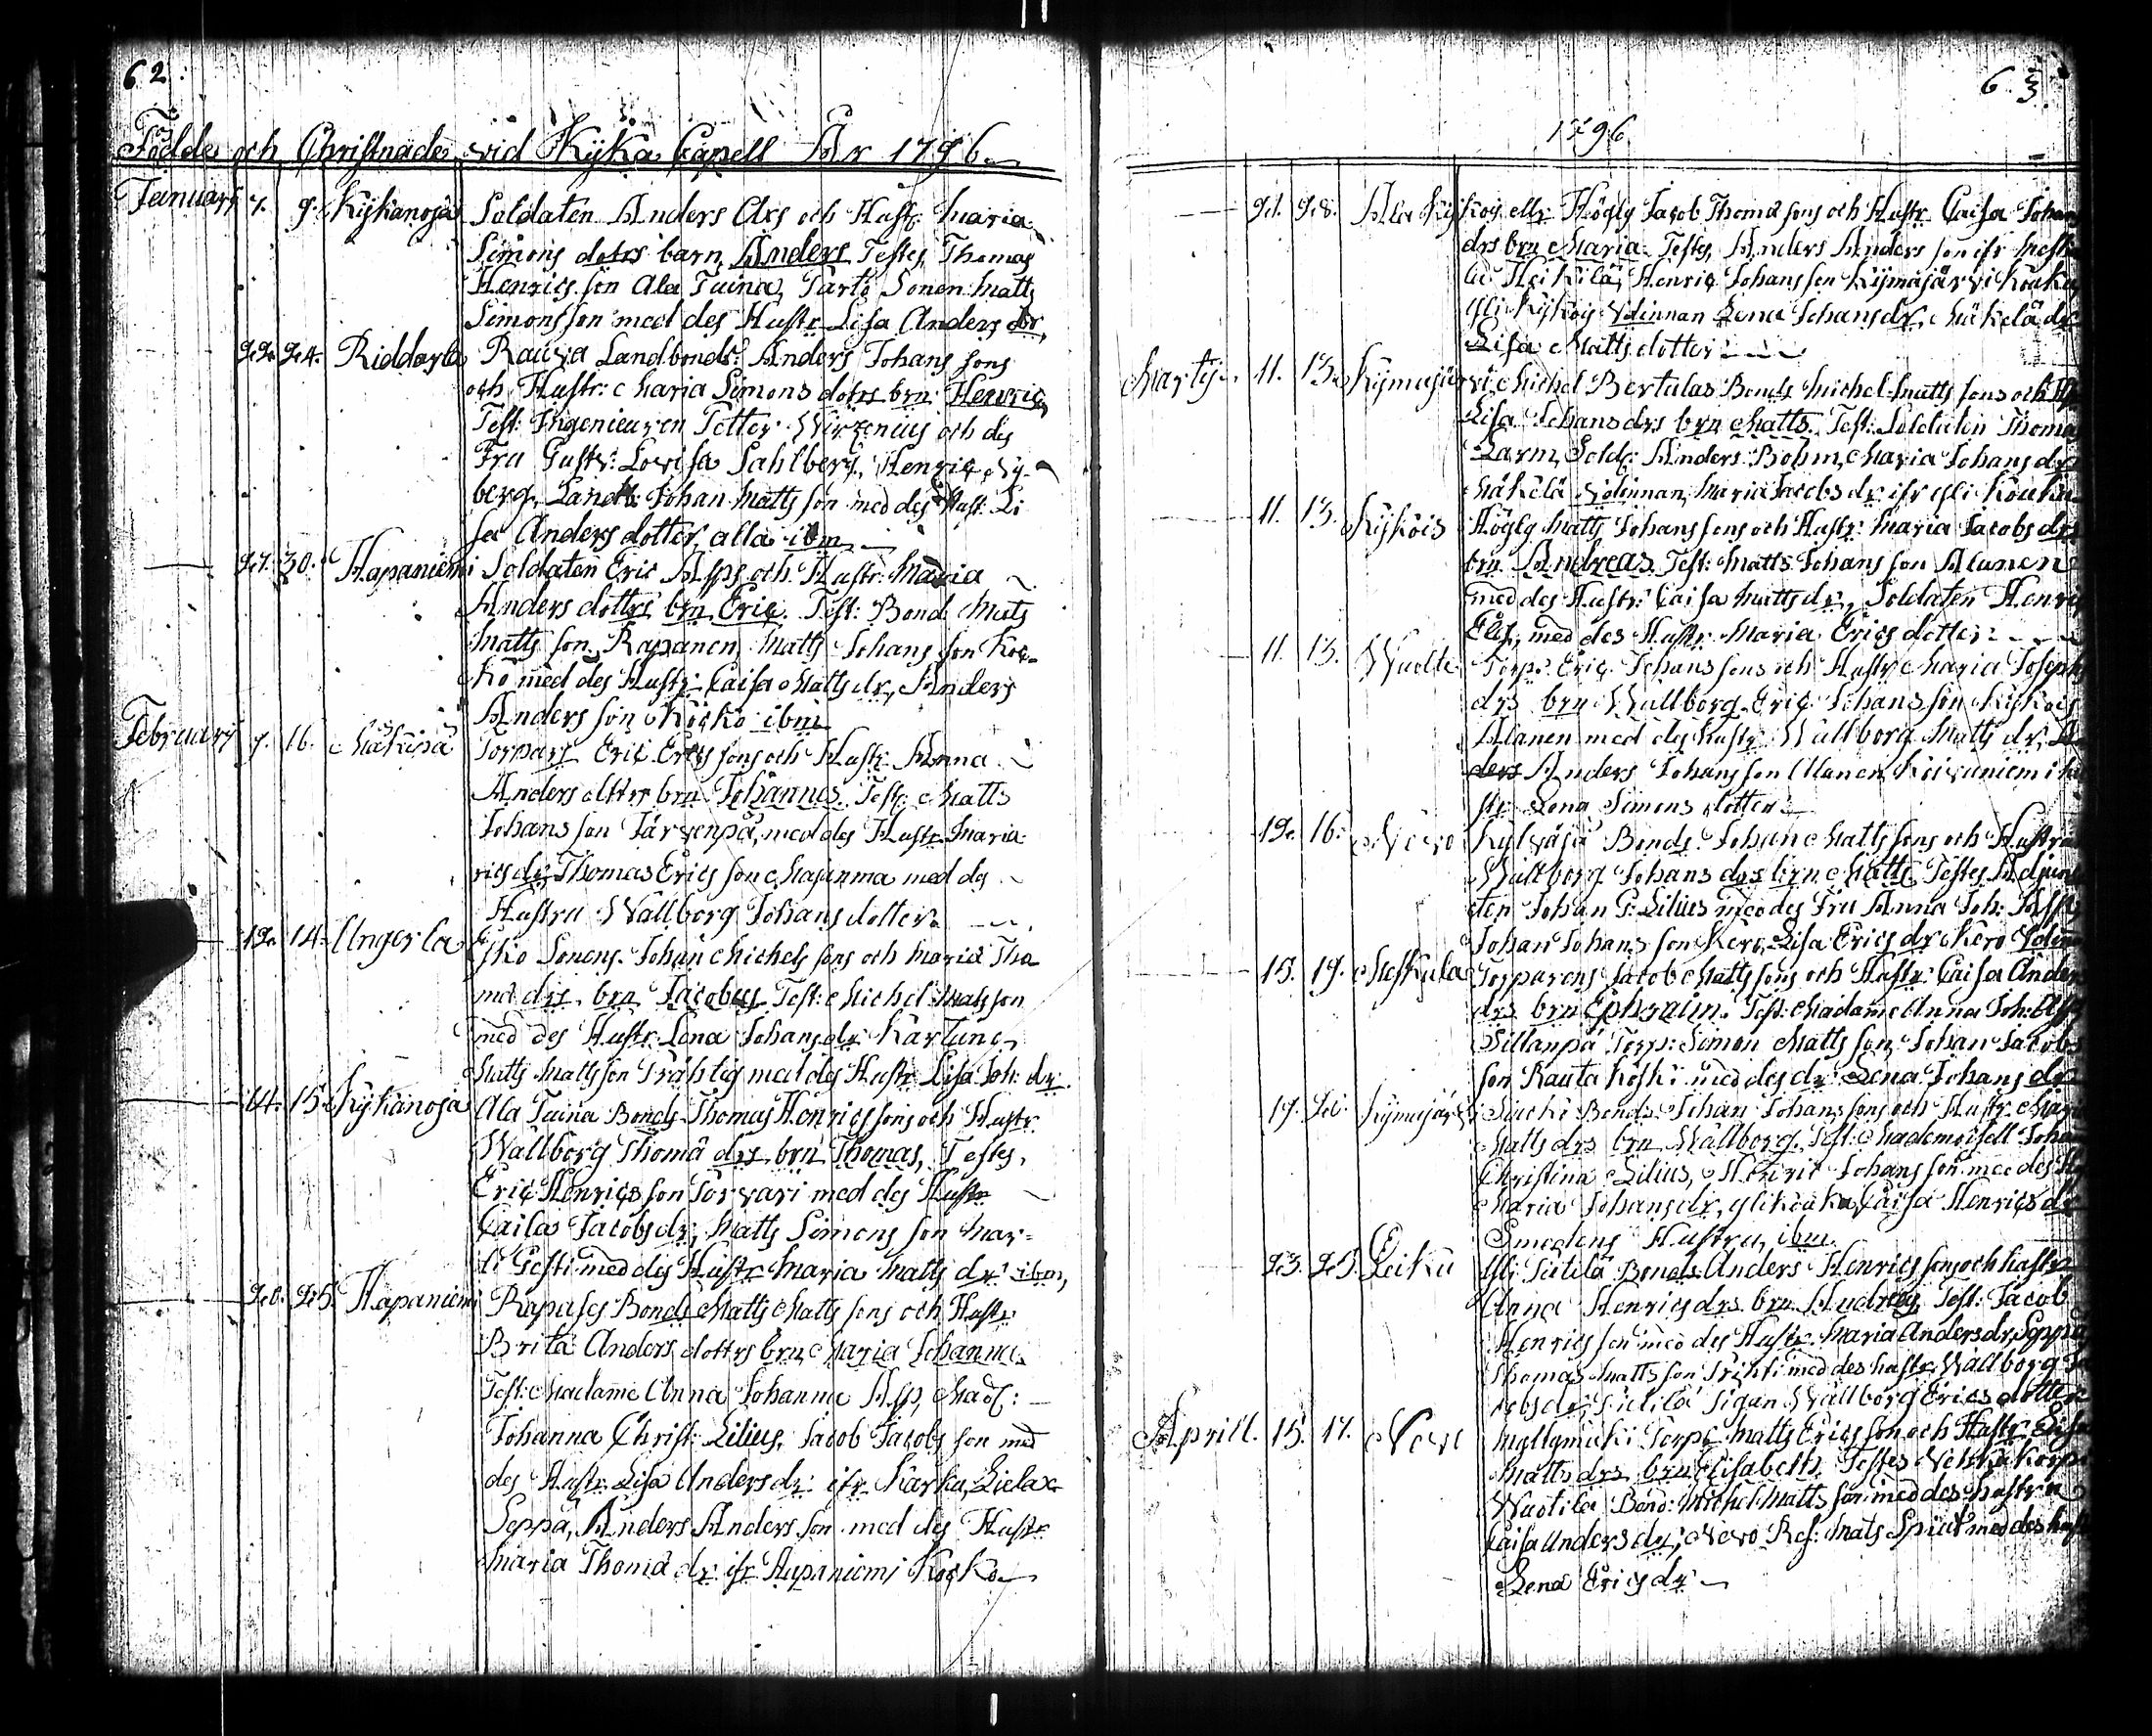 62.
Födde och Christnade vid Kÿkä Capell År 1796.
Januarÿ 7. 9. Kÿkänojä Soldaten Anders Axs och Hustr: Maria
Simons dotrs barn Anders Testes, Thomas
Henrics son Ala Tuina, Sonen Matts
Simonsson med des Hustr Lisa Anders dr,
22. 24. Riddarla Rauva Landbonds: Anders Johans sons
och Hustr: Maria Simons dotrs brn: Henric,
Test: Ingenieuren Petter Wirzenius och des
Fru Gustv: Lovisa Sahlberg, Henric Ny-
berg, Landb: Johan Matts son med des Hust: Li
sa Anders dotter, alla ibm
27. 30. Hapaniemi Soldaten Eric Asps och Hustr: Maria
Anders dottrs brn Eric. Test: Bond: Mats
Matts son Rapanen, Matts Johans son Koc-
kö med des Hustr: Caisa Matts dr, Anders
Anders son Köckö ibm
Februarÿ 7. 16. Säkisä Torpars Eric Erics sons och Hustr: Anna
Anders dttrs brn Johannes. Test: Matts
Johans son Järvenpä, med des Hustr Maria
rics dr, Thomas Erics son Majanma med des
Hustru Wallborg Johans dotter
12. 14. Ungerla Esko Sonens Johan Michels sons och Maria Tho
mæ drs, brn Jacobus Test: Michel Mats son
med des Hustr Lena Johans dr Kartune,
Matts Matts son Trähtig med des Hustr Lisa Joh: dr:
14. 15. Kÿkänojä Ala Tuina Bonds Thomas Henrics sons och Hustr
Wallborg Thomæ drs, brn Thomas, Testes,
Eric Henrics son Torvari med des Hustr
Caisa Jacobs dr, Matts Simons son Mar-
ti Gesti med des Hustr Maria Matts dr ibm,
20. 25. Hapaniemi Rapases Bonds Matts Matts sons och Hustr
Brita Anders dottrs brn Maria Johanna.
Test: Madame Anna Johanna Asp, Mad:
Johanna Christ: Lilius, Jacob Jacobs son med
des Hustr Lisa Anders dr: ifr Karhu, Lielax
Seppä, Anders Anders son med des Hustr
Maria Thomæ dr ifr Hapaniemi Köckö
63.
1796
27. 28. Ala Kÿ Högly Jacob Thomæ sons och Hustr Caisa Johans
drs brn Maria Testes, Anders Anders son ifr Mesk
la Heikilä, Henric Johans son Kÿmäjärvi Kouku
Kÿkois Lena Johans dr, Mäkelä dr
Lisa Matts dotter
Martÿ. 11. 13. Kÿmäjärvi Michel Bertulas Bonds Michel Matts sons och H
Lisa Johans drs brn Matts. Test: Soldaten Thomas
Larm, Sold: Anders Bohm, Maria Johans dr
Mäkelä, Maria Jacobs dr ifr Kouku
11. 13. Kÿkois Högly Matts Johans sons och Hustr: Maria Jacobs drs
brn Andreas Test: Matts Johans son Alanen
med des Hustr: Caisa Matts dr, Soldaten Henric
med des Hustr Maria Erics dotter
11. 13. Wuolte Torps: Eric Johans sons och Hustr Maria Josephs
drs brn Wallborg. Eric Johans son Kÿkois
Alanen med des Hustr Wallborg Matts dr, An
ders Anders Johans son Alanen, Koivuniemi hu
str Lena Simons dotter
12. 16. Nevo Kylväjä Bonds Johan Matts sons och Hustru
Wallborg Johans drs brn Matts Testes Adjunc
ten Johan G: Lilius med des Fru Anna Joh: Asp,
Johan Johans son Kero, Lisa Erics dr Kero
15. 17. Meskula Torparens Jacob Matts sons och Hustr Caisa Anders
drs brn Ephraim. Test: Madame Anna Joh: Asp
Sillanpä Torp: Simon Matts son, Johan Jacobs
son Rautakoski med des dr Lena Johans dr
17. 20. Kÿmäjärvi Bonds Johan Johans sons och Hustr Maria
Matts drs brn Wallborg. Test: Mademoisell Joha
Christina Lilius, Henric Johans son med des H
Maria Johans dr, Caisa Henrics dr
Smedens Hustru, ibm.
23. 25. Leiku Bonds Anders Henrics sons och hustr
Anna Henrics drs brn Andreas Test: Jacob
Henrics son med des Hustr Maria Anders dr, Seppä
Thomas Matts son med des hustr Wallborg Ja
cobs dr, Pigan Wallborg Erics dotter
Aprill. 15. 17. Nevo Myllymäki Torps Matts Erics son och Hustr Lisa
Matts drs brn Elisabeth Testes
Wuotila Bond: Michel Matts son med des hustru
Caisa Anders dr, Nevo Res: Mats Spiut med des hust
Lena Erics dr